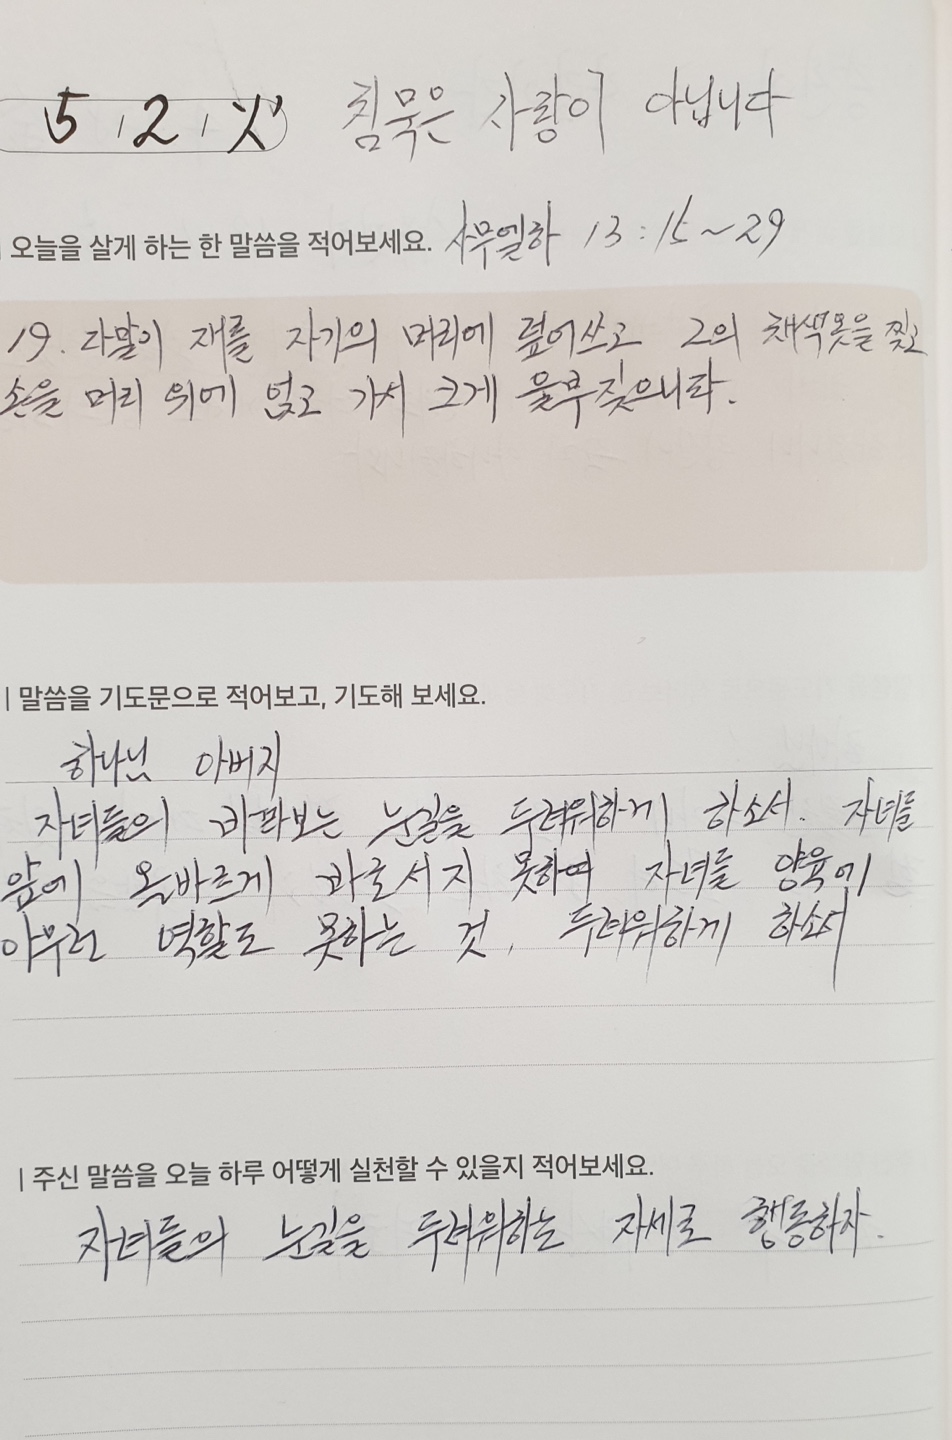 5 / 2 / 火 침묵은 사랑이 아닙니다
| 오늘을 살게 하는 한 말씀을 적어보세요. 사무엘하 13:15~29
19. 다말이 재를 자기의 머리에 덮어쓰고 그의 채색옷을 찢고
손을 머리 위에 얹고 가서 크게 울부짖으니라.
| 말씀을 기도문으로 적어보고, 기도해 보세요.
하나님 아버지
자녀들의 바라보는 눈길을 두려워하게 하소서. 자녀들
앞에 올바르게 바로서지 못하여 자녀들 양육에
아무런 역할도 못하는 것, 두려워하게 하소서
| 주신 말씀을 오늘 하루 어떻게 실천할 수 있을지 적어보세요.
자녀들의 눈길을 두려워하는 자세로 행동하자.